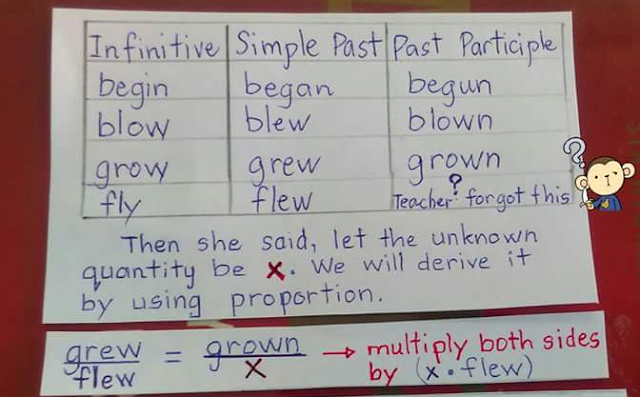 Infinitive Simple Past Past Participle
begin began begun
blow blew blown
grow grew grown
fly flew Teacher forgot this
?
?
Then she said, let the unknown
quantity be x. We will derive it
by using proportion.
grew/flew = grown/x → multiply both sides
by (x • flew)